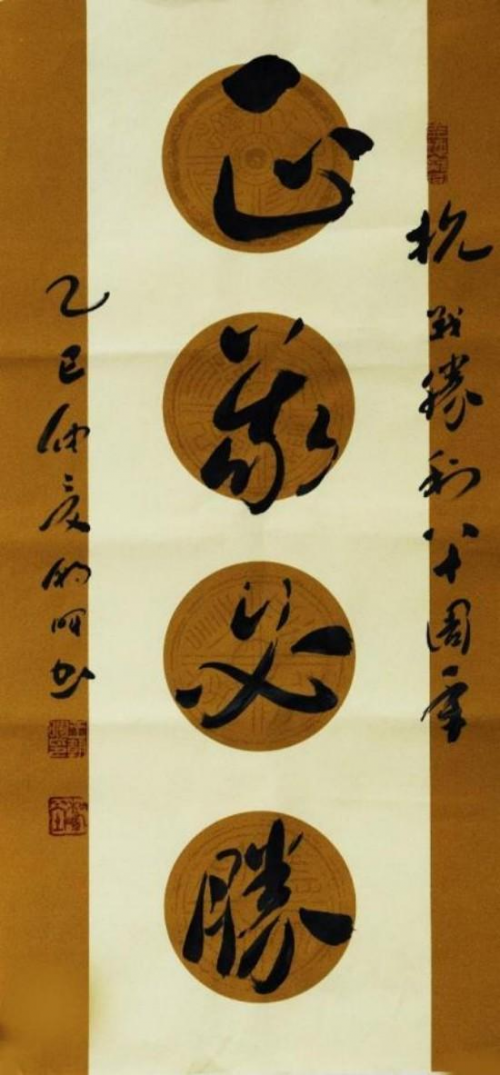 抗戰勝利八十周年
正義必勝
乙巳仲夏